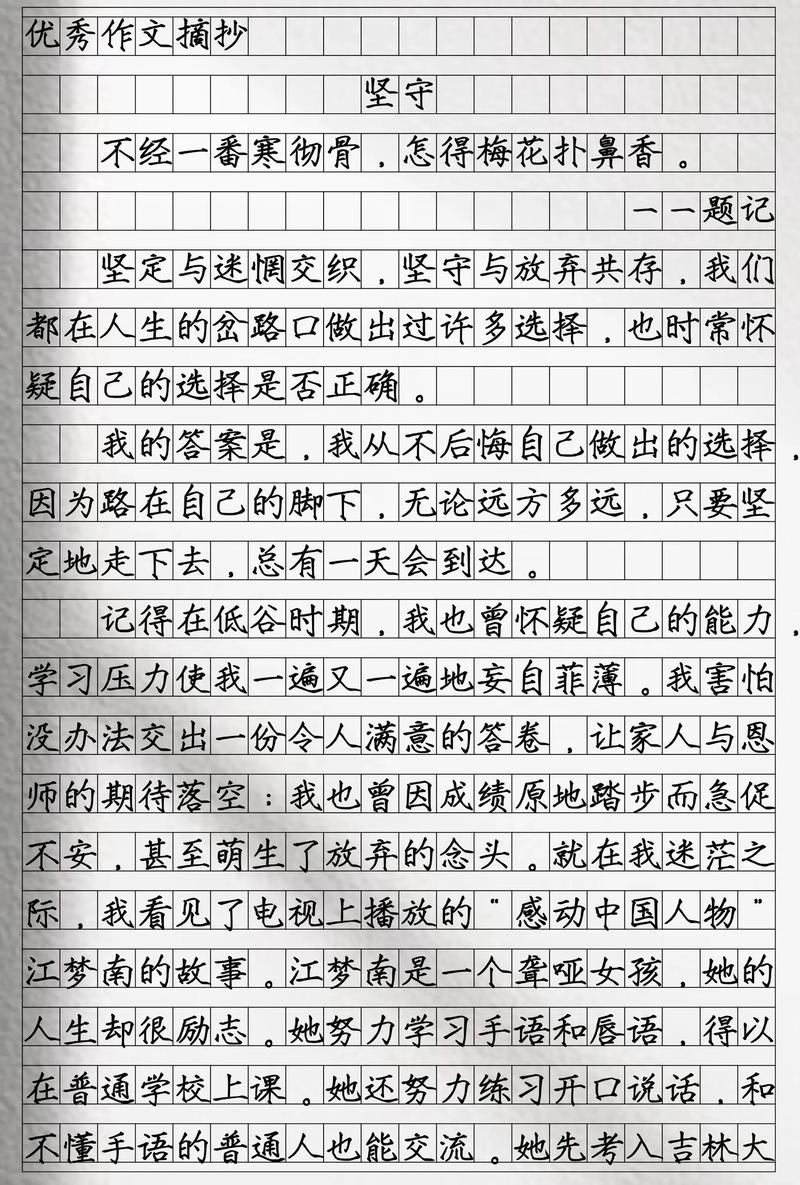 优秀作文摘抄
坚守
不经一番寒彻骨，怎得梅花扑鼻香。
一一题记
坚定与迷惘交织，坚守与放弃共存，我们
都在人生的岔路口做出过许多选择，也时常怀
疑自己的选择是否正确。
我的答案是，我从不后悔自己做出的选择，
因为路在自己的脚下，无论远方多远，只要坚
定地走下去，总有一天会到达。
记得在低谷时期，我也曾怀疑自己的能力，
学习压力使我一遍又一遍地妄自菲薄。我害怕
没办法交出一份令人满意的答卷，让家人与恩
师的期待落空：我也曾因成绩原地踏步而急促
不安，甚至萌生了放弃的念头。就在我迷茫之
际，我看见了电视上播放的“感动中国人物”
江梦南的故事。江梦南是一个聋哑女孩，她的
人生却很励志。她努力学习手语和唇语，得以
在普通学校上课。她还努力练习开口说话，和
不懂手语的普通人也能交流。她先考入吉林大